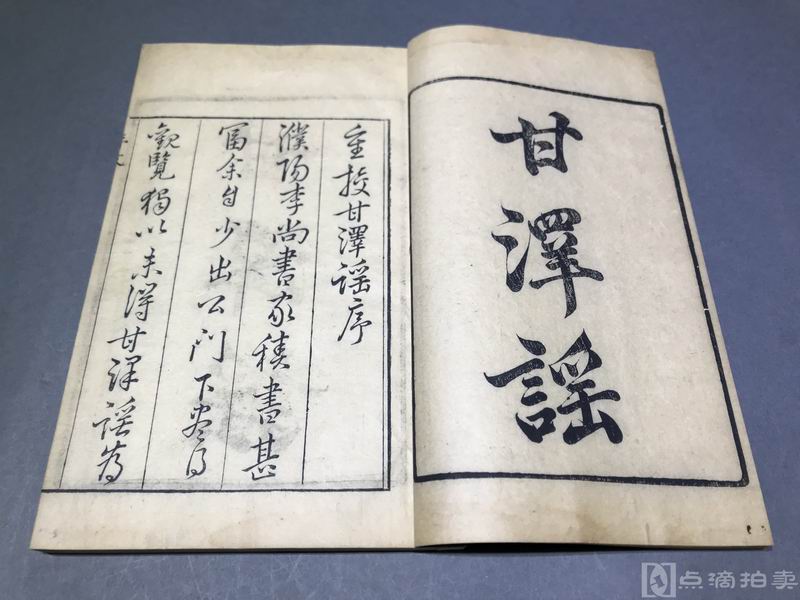 甘澤謠
重挍甘澤謠序
濮陽李尚書家積書甚
富余自少出公門下盡得
觀覽獨以未得甘澤謠為
点滴拍卖